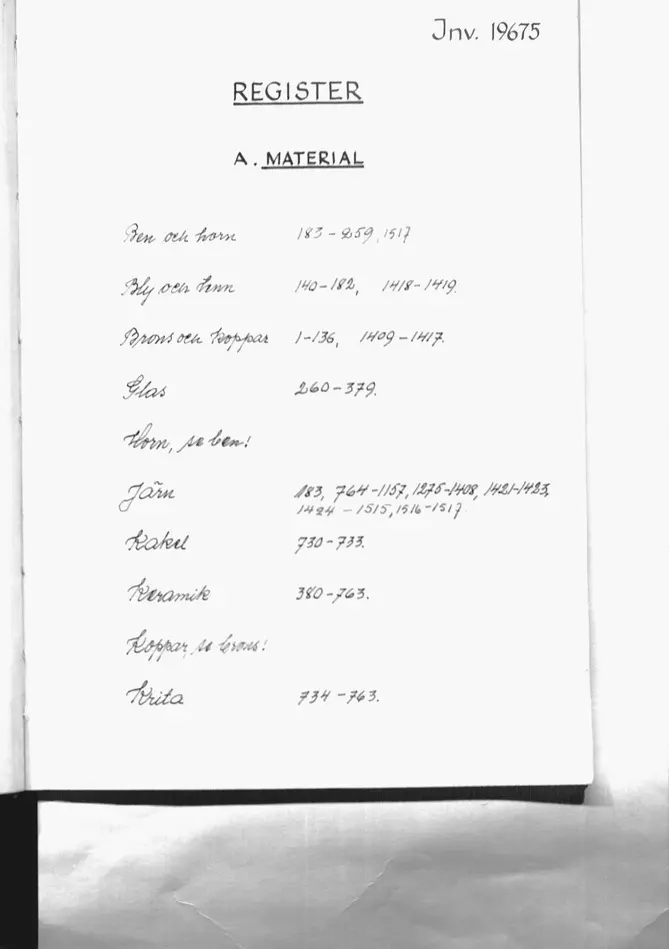 Inv. 19675
REGISTER
A. MATERIAL
Ben och horn 183-259, 1517
Bly och tenn 140-182, 1418-1419.
Brons och koppar 1-136, 1409-1417.
Glas 260-379.
Horn, se ben!
Järn 183, 764-1157, 1275-1408, 1421-1423,
1424 - 1515, 1516-1517
Kakel 730-733.
Keramik 380-763.
Koppar, se brons!
Krita 734-763.